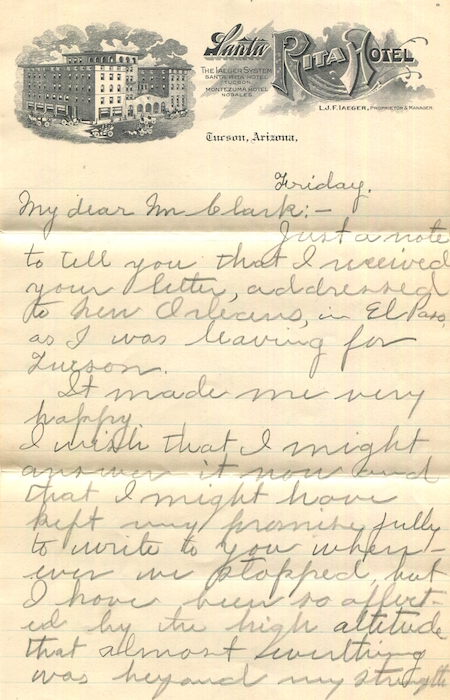 Santa Rita Hotel
The Iaeger System
Santa Rita Hotel
Tucson
Montezuma Hotel
Nogales
L.J.F. Iaeger, Proprietor & Manager.
Tucson, Arizona,
Friday.
My dear Mr Clark:-
Just a note
to tell you that I received
your letter, addressed
to New Orleans, in El Paso,
as I was leaving for
Tucson.
It made me very
happy.
I wish that I might
answer it now and
that I might have
kept my promise fully
to write to you when-
ever we stopped, but
I have been so affect-
ed by the high altitude
that almost everything
was beyond my strength